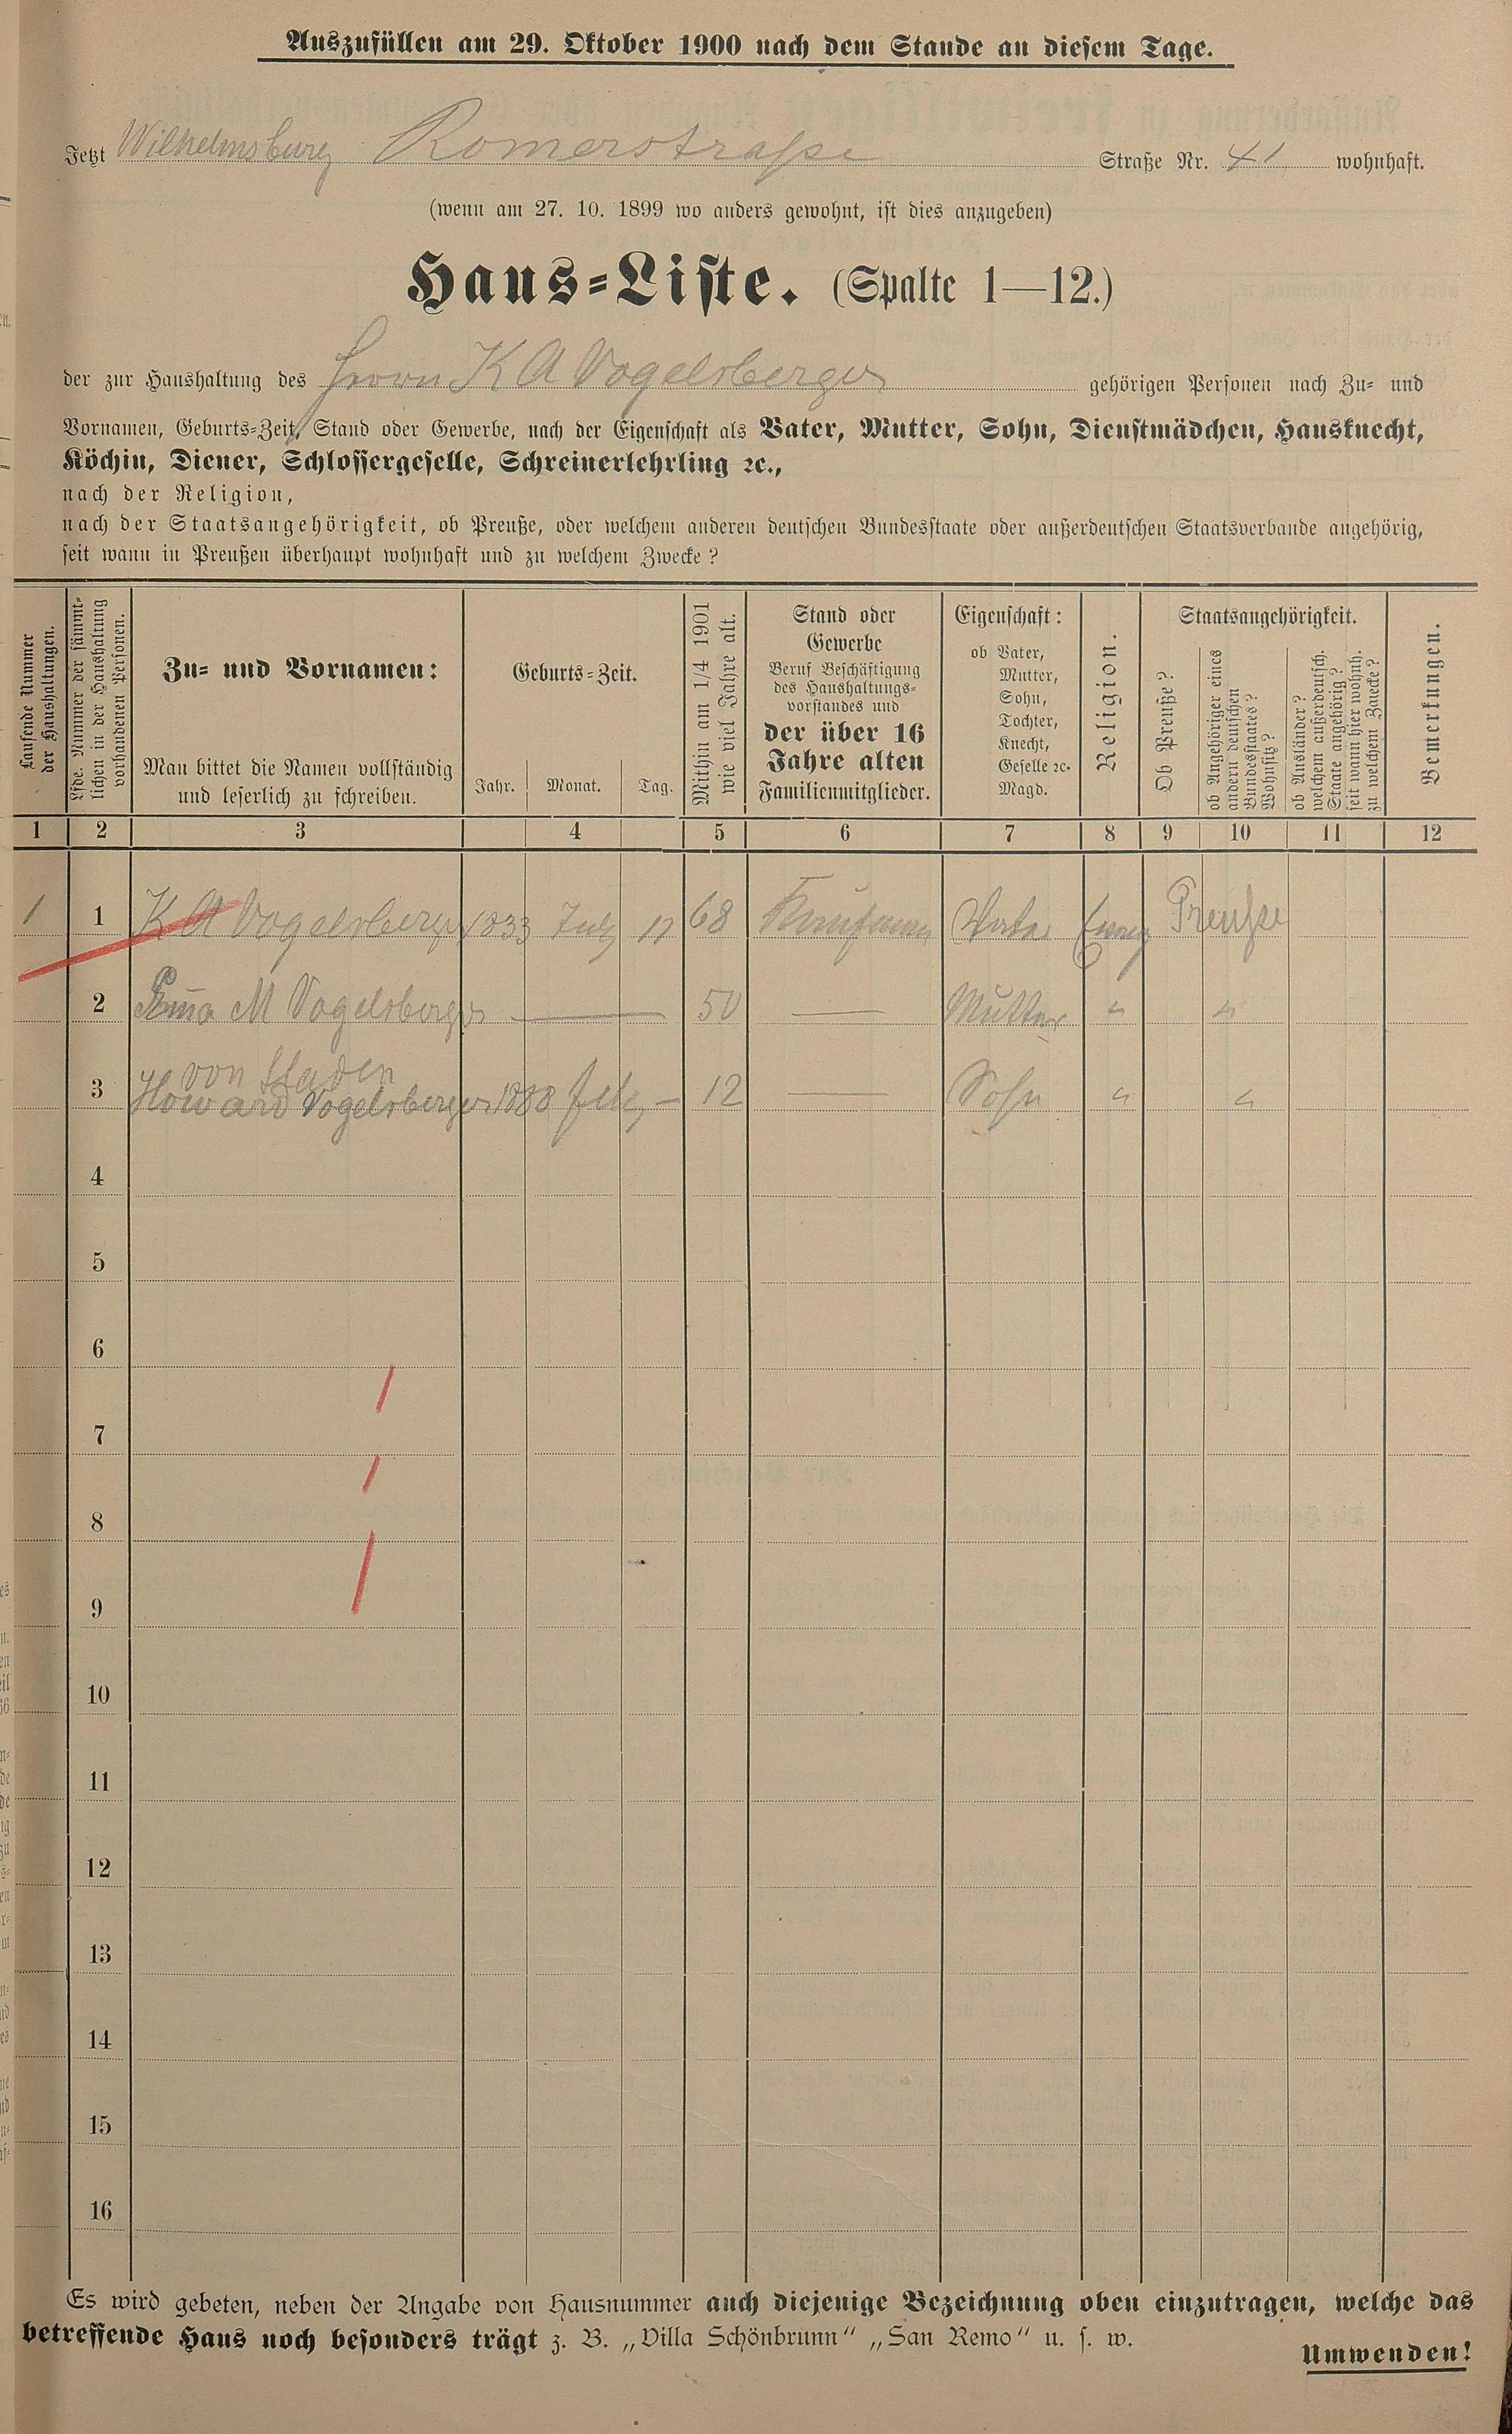 Auszufüllen am 29. Oktober 1900 nach dem Stande an diesem Tage.
Jetzt Wilhelmsburg Romerstraße Straße Nr. 41 wohnhaft.
(wenn am 27. 10. 1899 wo anders gewohnt, ist dies anzugeben)
Haus-Liste. (Spalte 1—12.)
der zur Haushaltung des Herrn K A Vogelsberger gehörigen Personen nach Zu- und
Vornamen, Geburts-Zeit, Stand oder Gewerbe, nach der Eigenschaft als Vater, Mutter, Sohn, Dienstmädchen, Hausknecht,
Köchin, Diener, Schlossergeselle, Schreinerlehrling ꝛc.,
nach der Religion,
nach der Staatsangehörigkeit, ob Preuße, oder welchem anderen deutschen Bundesstaate oder außerdeutschen Staatsverbande angehörig,
seit wann in Preußen überhaupt wohnhaft und zu welchem Zwecke?
Laufende Nummer
der Haushaltungen.
Lfde. Nummer der sämmt-
lichen in der Haushaltung
vorhandenen Personen.
Zu- und Vornamen:
Man bittet die Namen vollständig
und leserlich zu schreiben.
Geburts-Zeit.
Jahr. Monat. Tag.
Mithin am 1/4 1901
wie viel Jahre alt.
Stand oder
Gewerbe
Beruf Beschäftigung
des Haushaltungs-
vorstandes und
der über 16
Jahre alten
Familienmitglieder.
Eigenschaft:
ob Vater,
Mutter,
Sohn,
Tochter,
Knecht,
Geselle ꝛc.
Magd.
Religion.
Staatsangehörigkeit.
Ob Preuße?
ob Angehöriger eines
andern deutschen
Bundesstaates?
Wohnsitz?
ob Ausländer?
welchem außerdeutsch.
Staate angehörig?
seit wann hier wohnh.
zu welchem Zwecke?
Bemerkungen.
1 2 3 4 5 6 7 8 9 10 11 12
1 1 K A Vogelsberger 1833 July 11 68 Kaufmann Vater Evang Preuße
2 M Vogelsberger — 50 — Mutter " "
von Staden
3 Howard Vogelsberger 1888 feb — 12 — Sohn " "
4
5
6
7
8
9
10
11
12
13
14
15
16
Es wird gebeten, neben der Angabe von Hausnummer auch diejenige Bezeichnung oben einzutragen, welche das
betreffende Haus noch besonders trägt z. B. „Villa Schönbrunn“ „San Remo“ u. s. w.
Umwenden!